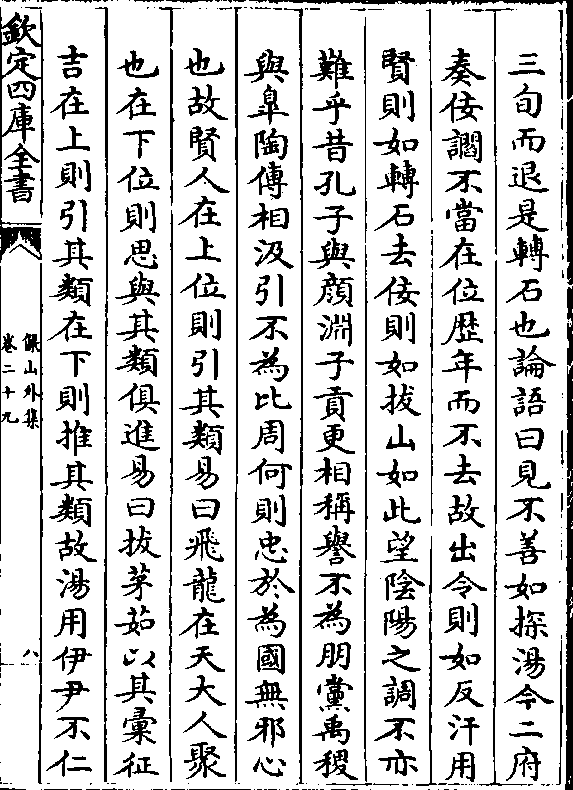 三旬而退是轉石也論語曰見不善如探湯今二府
奏佞讇不當在位歴年而不去故出令則如反汗用
賢則如轉石去佞則如拔山如此望陰陽之調不亦
難乎昔孔子與顔淵子貢更相稱譽不為朋黨禹稷
與臯陶傳相汲引不為比周何則忠於為國無邪心
也故賢人在上位則引其類易曰飛龍在天大人聚
也在下位則思與其類俱進易曰拔茅茹以其彚征
吉在上則引其類在下則推其類故湯用伊尹不仁
欽定四庫全書
儼山外集
卷二十九
八